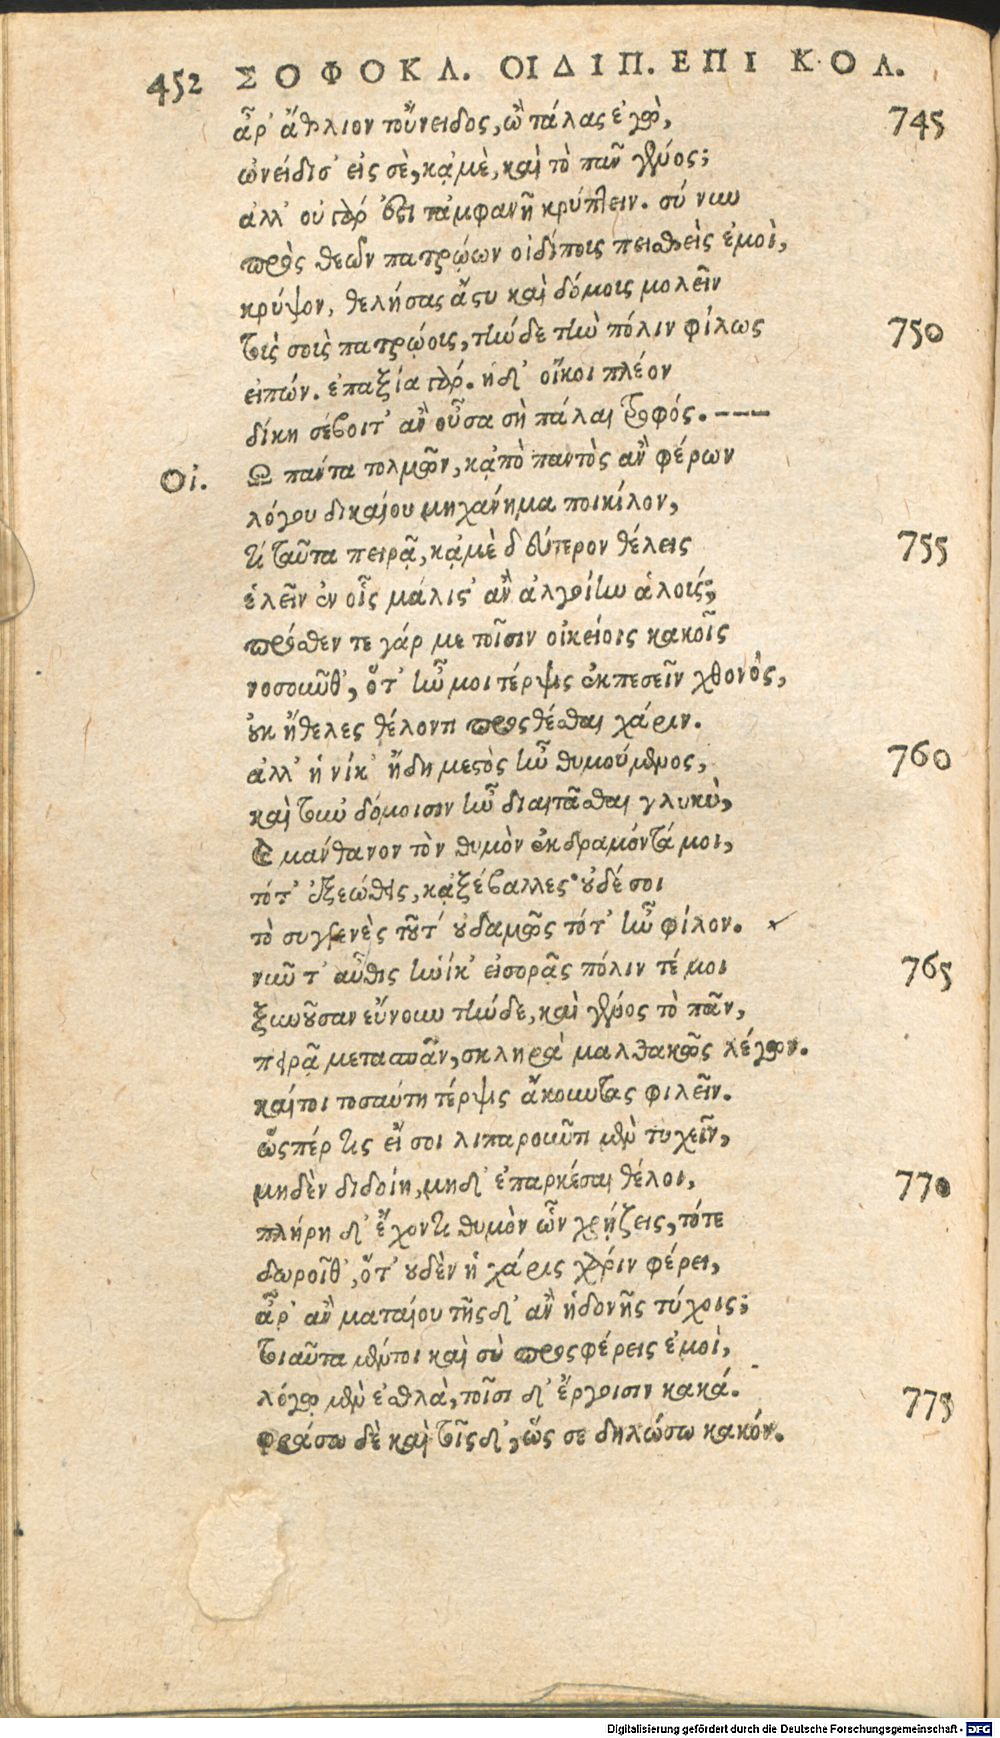 452 ΣΟΦΟΚΛ. ΟΙΔΙΠ. ΕΠΙ ΚΟΛ.
ἆρ' ἄθλιον τοὔνειδος, ὢ τάλας ἐγὼ, 745
ὠνείδισ' εἰς σὲ, κᾀμὲ, καὶ τὸ πᾶν γένος;
ἀλλ' οὐ γὰρ ἔστι τἀμφανῆ κρύπτειν. σύ νυν
πρὸς θεῶν πατρῴων οἰδίπους πεισθεὶς ἐμοὶ,
κρύψον, θελήσας ἄστυ καὶ δόμοις μολεῖν
τοὶς σοις πατρῴοις, τήνδε τὴν πόλιν φίλως 750
εἰπών. ἐπαξία γάρ. ἡ δ' οἴκοι πλέον
δίκῃ σέβοιτ' ἂν οὖσα σὴ πάλαι τροφός. ---
Οἰ. Ω πάντα τολμῶν, κᾀπὸ παντὸς ἂν φέρων
λόγου δικαίου μηχάνημα ποικίλον,
τί ταῦτα πειρᾷ, κᾀμὲ δεύτερον θέλεις 755
ἑλεῖν ἐν οἷς μάλιστ' ἂν ἀλγοίην ἁλούς;
πρόσθεν τε γάρ με τοῖσιν οἰκείοις κακοῖς
νοσοῦνθ', ὅτ' ἦν μοι τέρψις ἐκπεσεῖν χθονὸς,
οὐκ ἤθελες θέλοντι προσθέσθαι χάριν.
ἀλλ' ἡνίκ' ἤδη μεστὸς ἦν θυμούμενος, 760
καὶ τοὐν δόμοισιν ἦν διαιτᾶσθαι γλυκὺ,
Ἐμάνθανον τὸν θυμὸν ἐκδραμόντα μοι,
τότ' ἐξεώθεις, κᾀξέβαλλες· οὐδέ σοι
τὸ συγγενὲς τοῦτ' οὐδαμῶς τότ' ἦν φίλον.
νῦν τ' αὖθις ἡνίκ' εἰσορᾷς πόλιν τέ μοι 765
ξυνοῦσαν εὔνουν τήνδε, καὶ γένος τὸ πᾶν,
πειρᾷ μετασπᾷν, σκληρὰ μαλθακῶς λέγων.
καίτοι τοσαύτη τέρψις ἄκοντας φιλεῖν.
ὥσπέρ τις εἴ σοι λιπαροῦντι μὲν τυχεῖν,
μηδὲν διδοίη, μηδ' ἐπαρκέσαι θέλοι, 770
πλήρη δ' ἔχοντι θυμὸν ὧν χρῄζεις, τότε
δωροῖθ', ὅτ' οὐδὲν ἡ χάρις χάριν φέρει,
ἆρ' ἂν ματαίου τῆς δ' ἂν ἡδονῆς τύχοις;
τοιαῦτα μέντοι καὶ σὺ προσφέρεις ἐμοὶ,
λόγῳ μὲν ἐσθλὰ, τοῖσι δ' ἔργοισιν κακά. 775
φράσω δὲ καὶ τοῖς δ', ὥς σε δηλώσω κακόν.
Digitalisierung gefördert durch die Deutsche Forschungsgemeinschaft - DFG